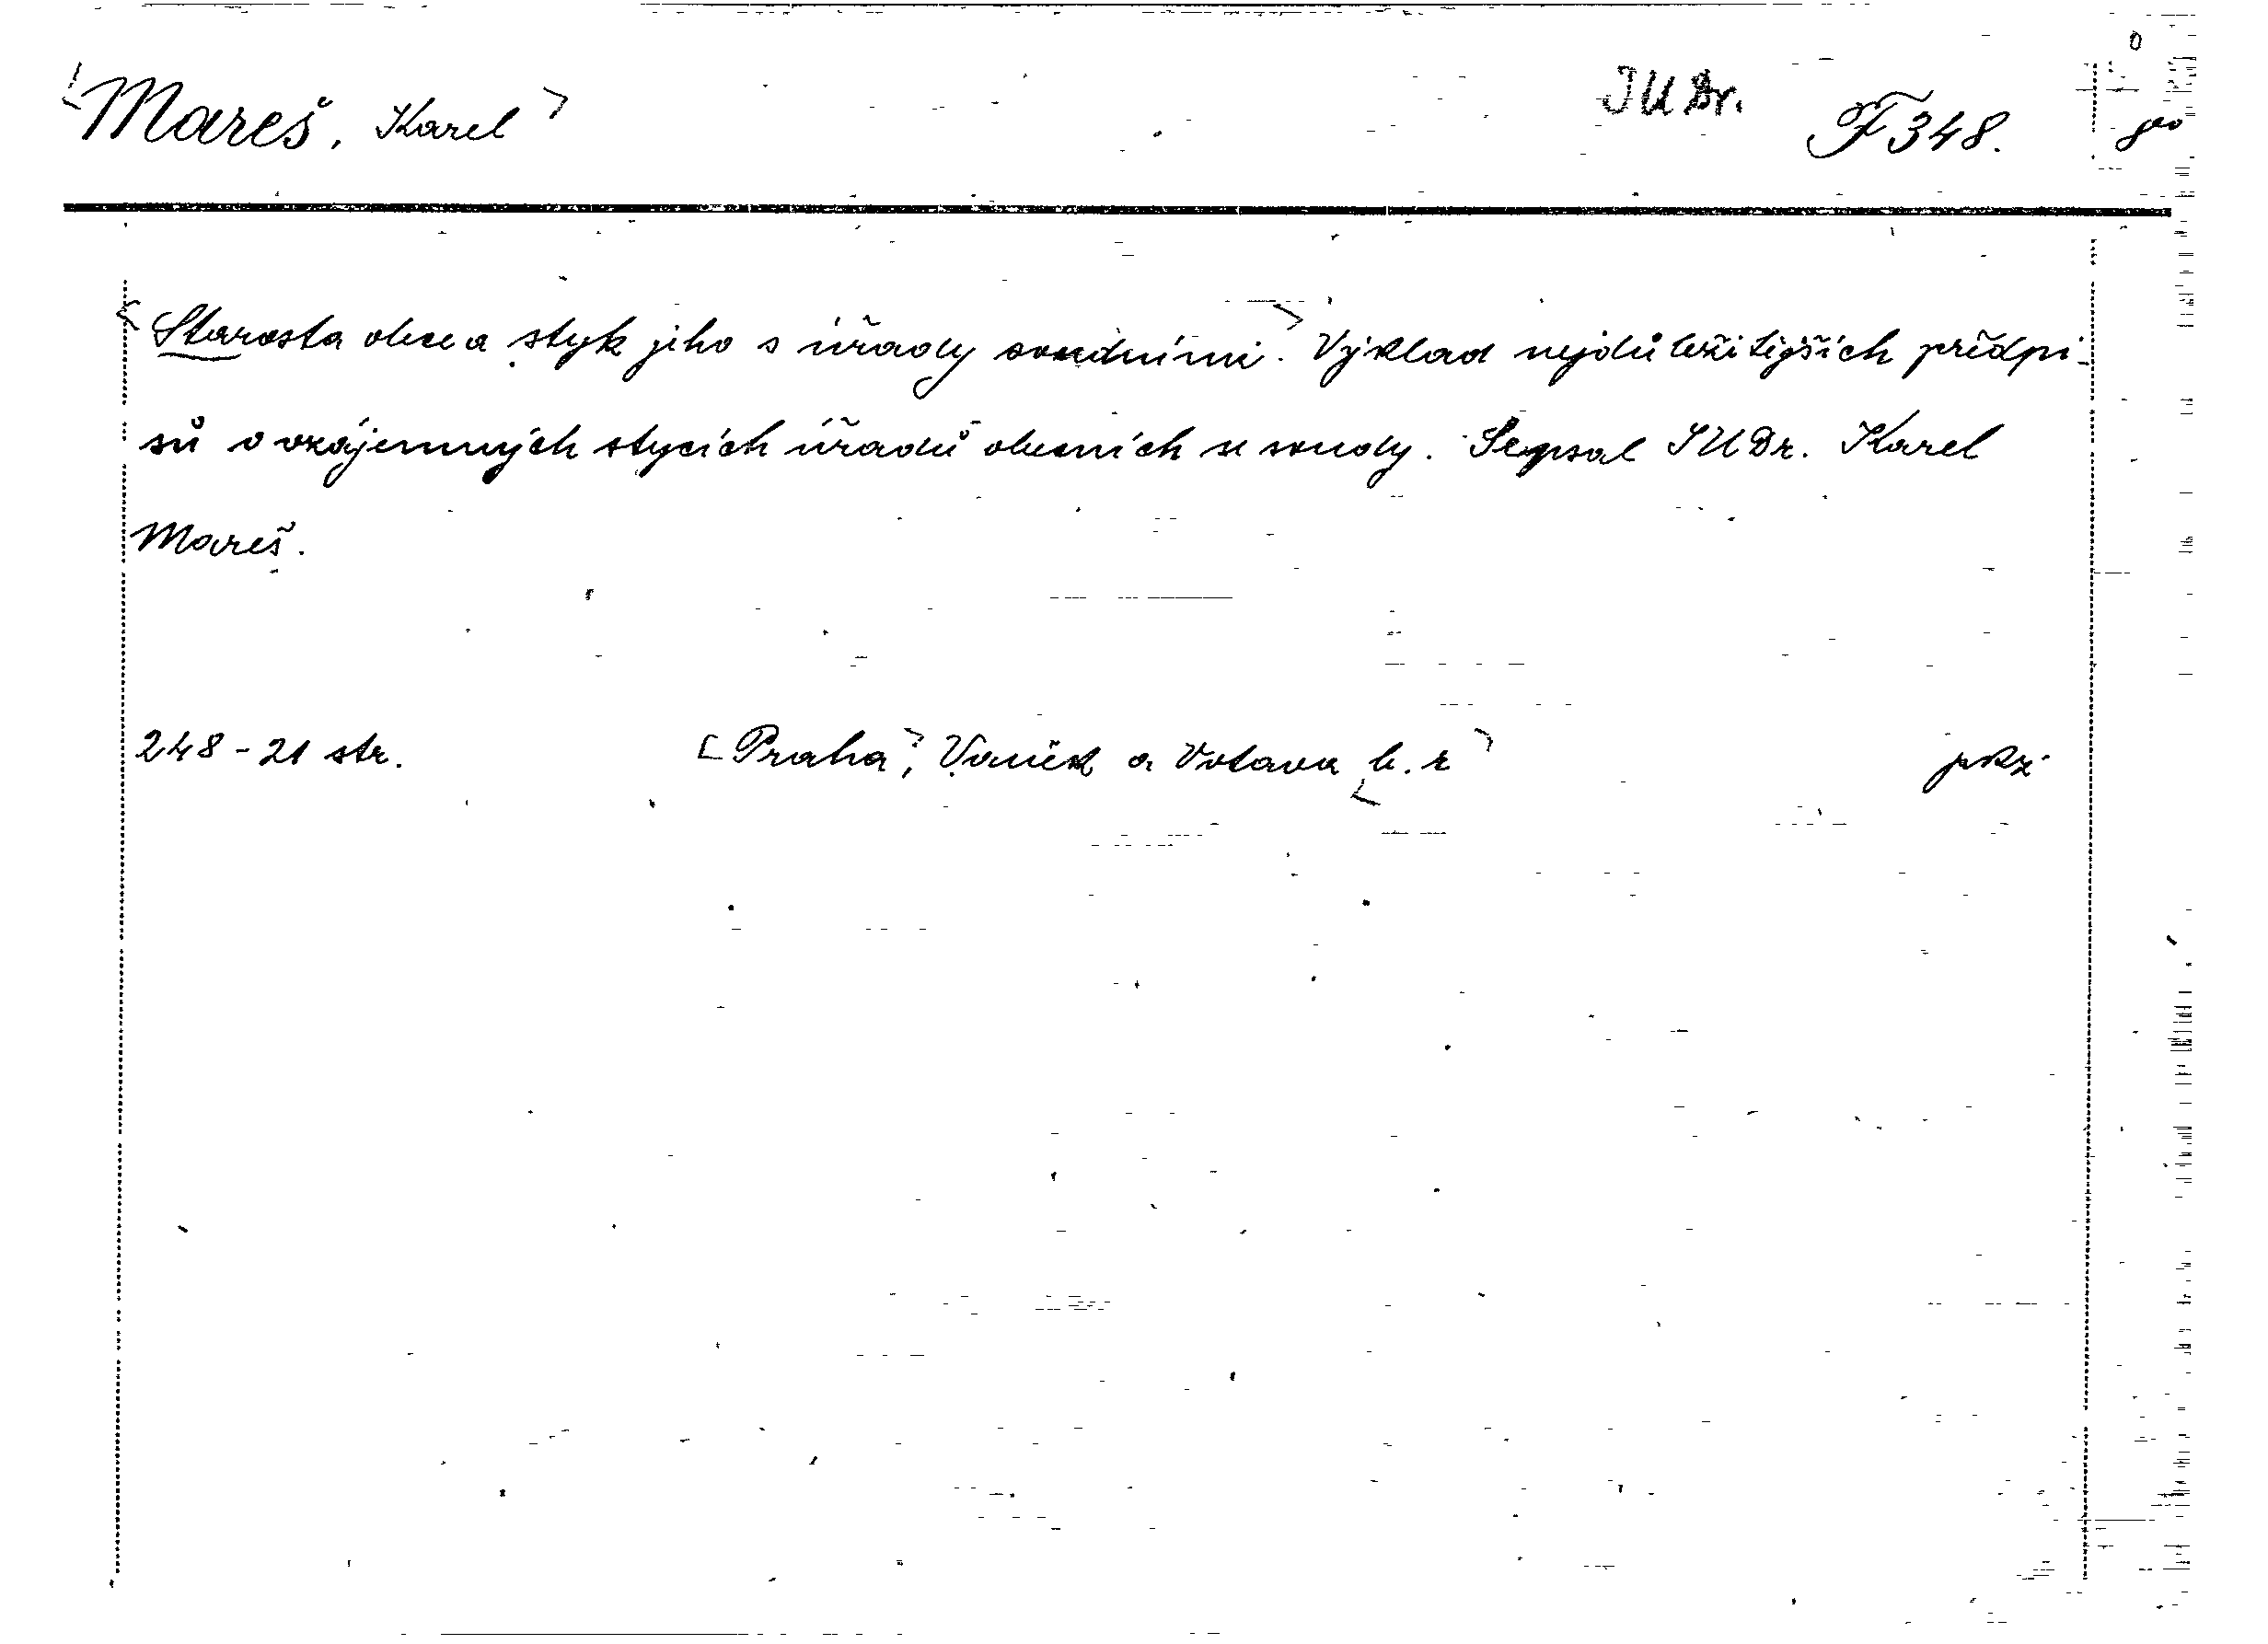 Mareš, Karel JUDr. F 348.
Starosta obce a styk jeho s úřady soudními. Výklad nejdůležitějších předpi-
sů o vzájemných stycích úřadů obecních se soudy. Sepsal JUDr. Karel
Mareš.
248 - 21 str. [Praha], Vaněk a Votava [b. r.]